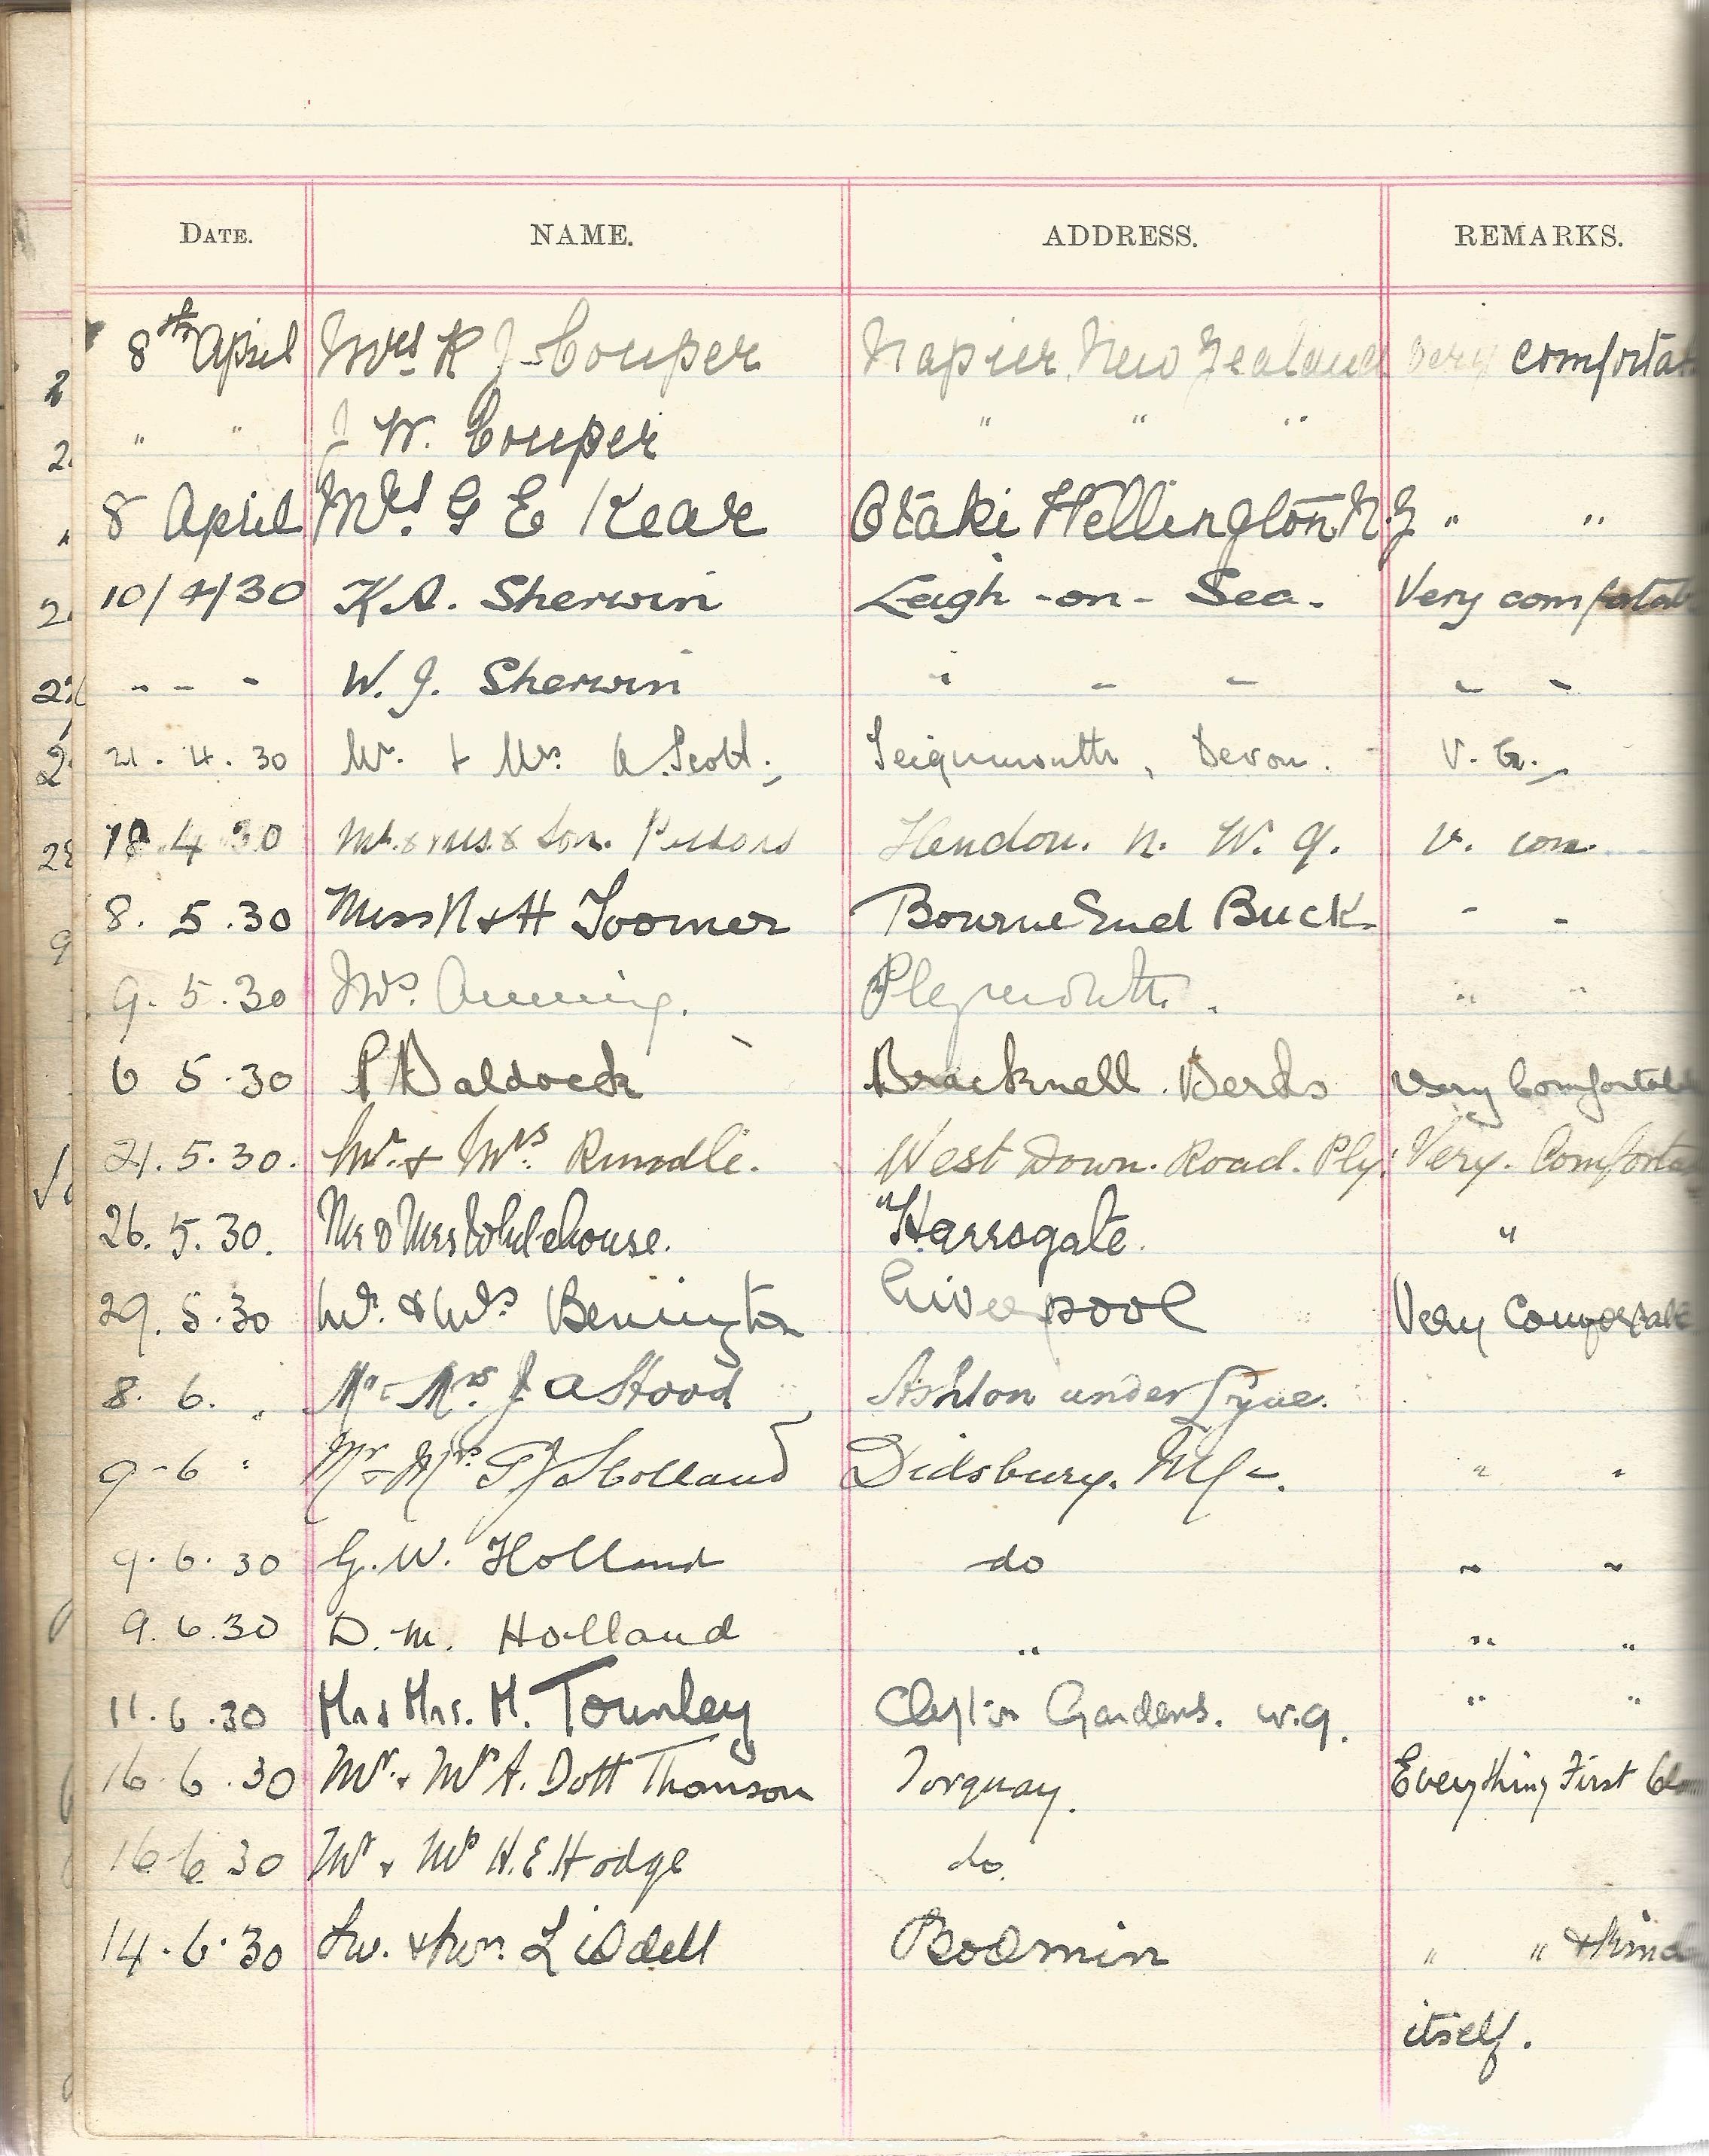 DATE. NAME. ADDRESS. REMARKS.
8th April Mrs R J Couper Napier, New Zealand very comfortab
" " J W. Couper " " "
8 April Mrs. G E Kear Otaki Wellington N.Z " "
10/4/30 K.A. Sherwin Leigh-on-Sea. Very comfortab
- - - W. J. Sherwin " - - - -
21.4.30 Mr. & Mrs. A. Scott. Teignmouth, Devon. V. G.
18.4.30 Mr. & Mrs. & Son. Hendon. N. W. 9. V. com.
8. 5.30 Miss N & H Toomer Bourne End Buck - -
9. 5.30 Mrs. Anning. Plymouth. " "
6 5.30 P Baldock Bracknell. Berks Very Comfortabl
21.5.30. Mr. & Mrs. Rundle. West Down. Road. Ply: Very. Comforta
26.5.30. Mr & Mrs Whitehouse. "Harrogate. "
29.5.30 Mr. & Mrs Benington Liverpool Very Comfortabl
8. 6. " Mr & Mrs. J A Hood Ashton under Lyne.
9-6 " Mr & Mrs. T J Holland Didsbury. M/c. " "
9.6.30 G. W. Holland do " "
9.6.30 D. M. Holland " " "
11.6.30 Mr & Mrs. M. Townley Gardens. W.9. " "
16.6.30 Mr. & Mrs A. Dott Thomson Torquay. Everything First Cla
16 6 30 Mr & Mrs H. E. Hodge do.
14.6.30 Mr. & Mrs. Liddell Bodmin " " & Kind
itself.